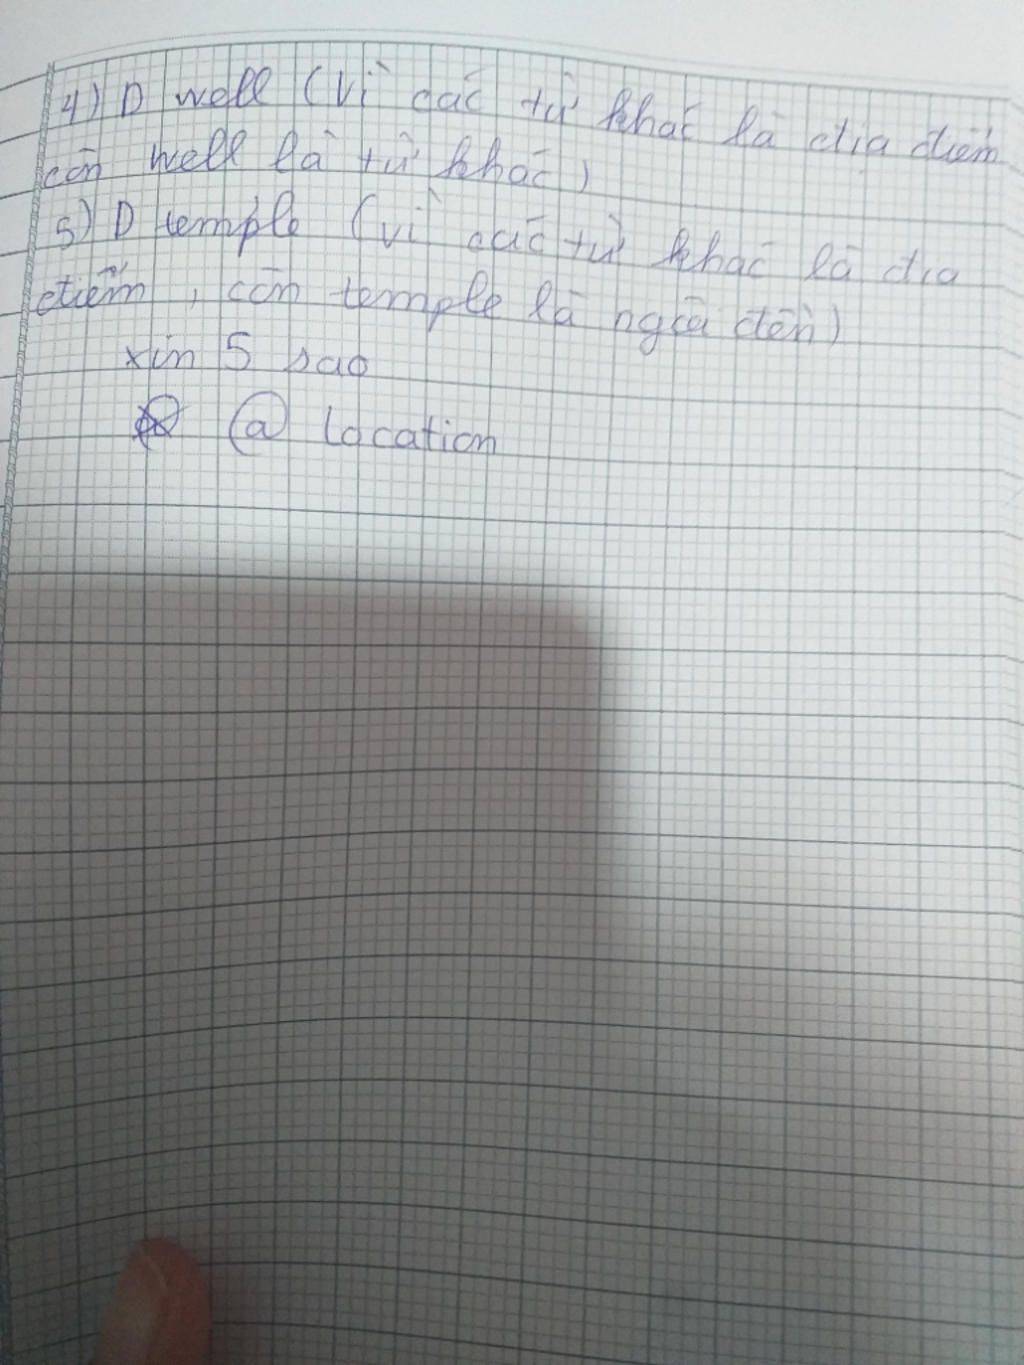 4) D well (vì các từ khác là địa điểm
còn well là từ khác)
5) D temple (vì các từ khác là địa
điểm, còn temple là ngôi đền)
xin 5 sao
@ Location